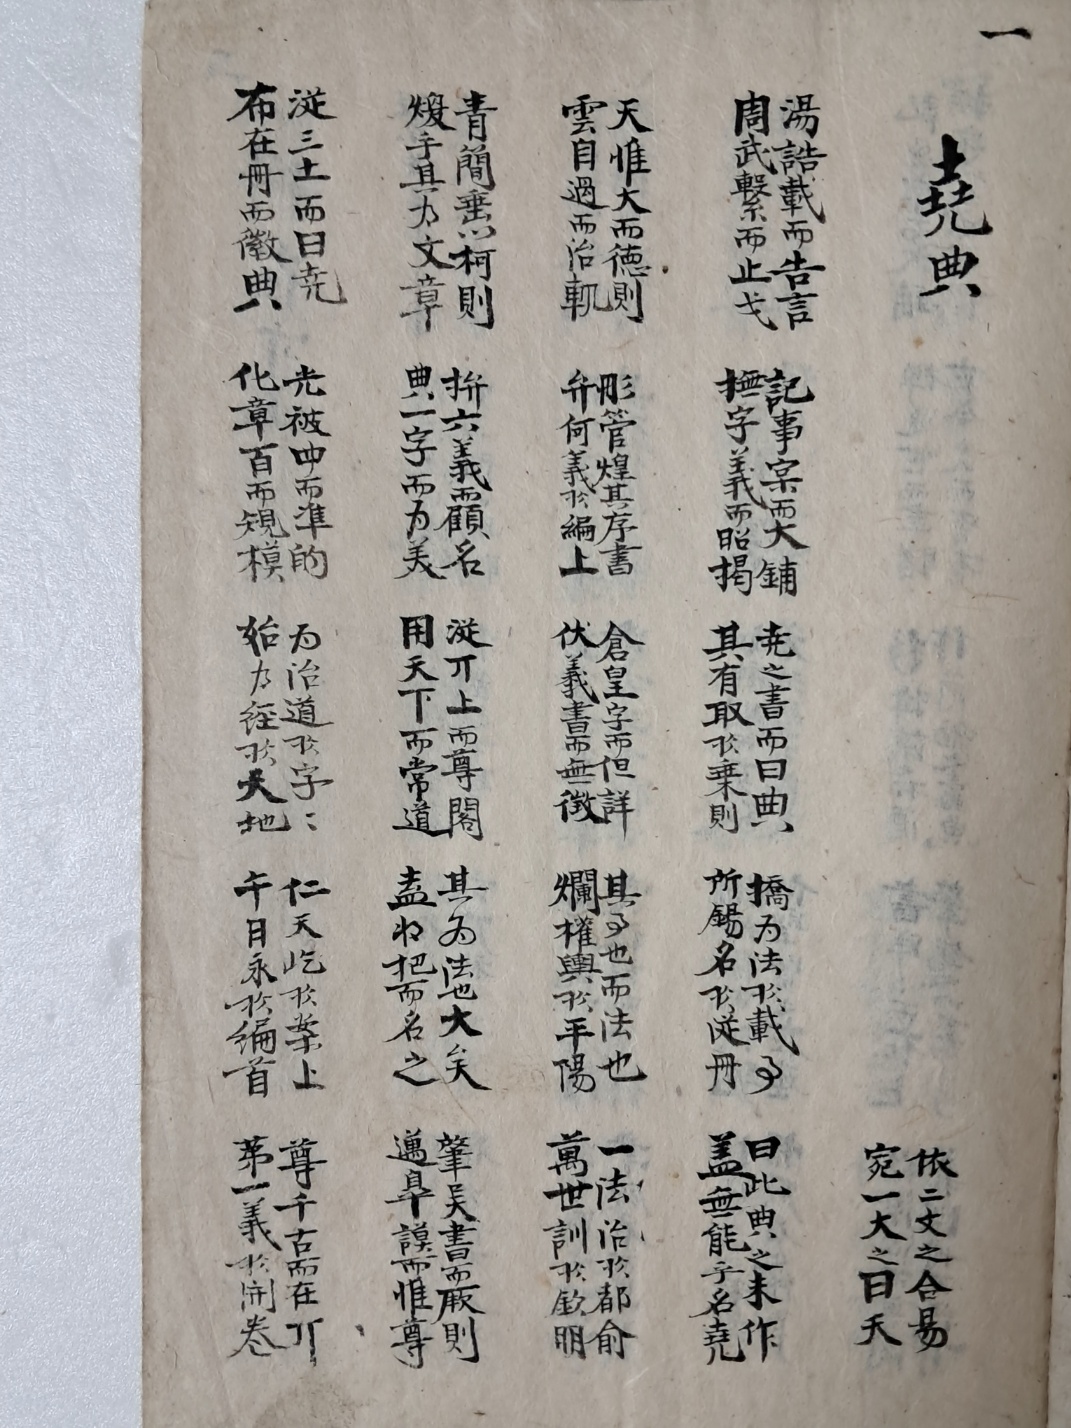 一
堯典
依二文之合易
宛一大之曰天
湯誥載而告言
周武繫而止戈
記事宲而大鋪
撫字義而昭揭
尭之書而曰典
其有取於乗則
撟为法於載事
所錫名於従冊
曰此典之未作
盖無能乎名堯
天惟大而德則
雲自過而治軌
彤管煌其序書
弁何義於編上
倉皇字而但詳
伏羲書而無徵
其事也而法也
爛權輿於平陽
一法治於都俞
萬世訓於欽明
青簡垂以柯則
煥乎其为文章
拚六義而顧名
典一字而为美
従丌上而尊閣
用天下而常道
其为法也大矣
盍以把而名之
肇吴書而厥則
邁皐謨而惟尊
従三土而曰尭
布在冊而徽典
光被四而準的
化章百而規模
为治道於字〻
始为經於天地
仁天屹於案上
午日永於編首
尊千古而在丌
苐一義於開巻